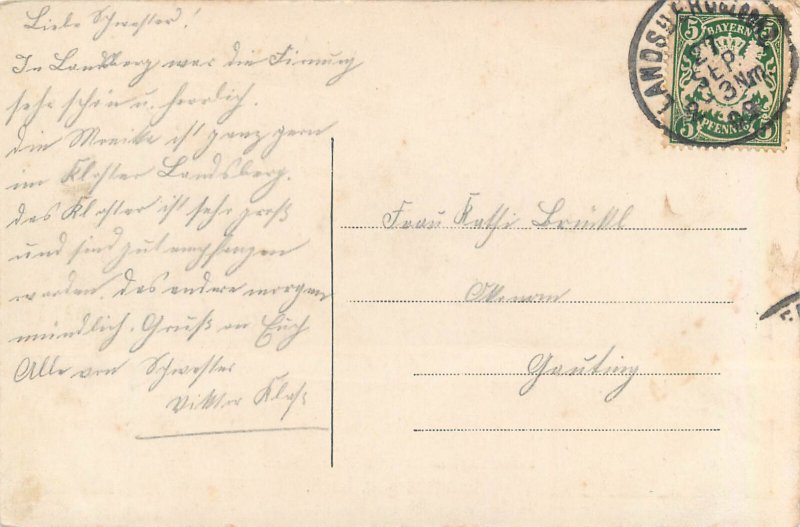 Liebe Schwester!
In Landsberg war die Firmung
sehr schön u. herrlich.
die Monika ist ganz gern
im Kloster Landsberg.
das Kloster ist sehr groß
und sind gut empfangen
worden. das andere morgen
mündlich. Gruß an Euch
Alle von Schwester
Viktor
LANDSBERG
27
SEP.
3 Nm
5 BAYERN 5
5 PFENNIG 5
Frau Kathi Brückl
Gauting